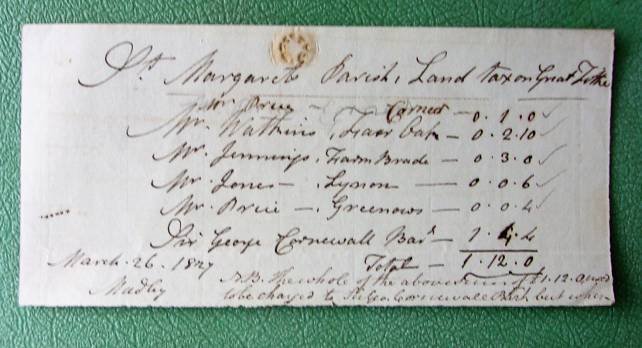 St Margarets Parish, Land tax on Great Tithe
Mr Price — Cornet — 0.1.0
Mr. Watkins, Fair Oak — 0.2.10
Mr. Jennings, Farm Brade — 0.3.0
Mr. Jones — Lynon — 0.0.6
Mr. Price — Greenows — 0.0.4
Sir George Cornewall Bart — 1.4.4
March. 26. 1827 Total — 1.12.0
Madley N.B. The whole of the above sum of £1.12.0
to be charged to Sir Geo. Cornewall Bart. but